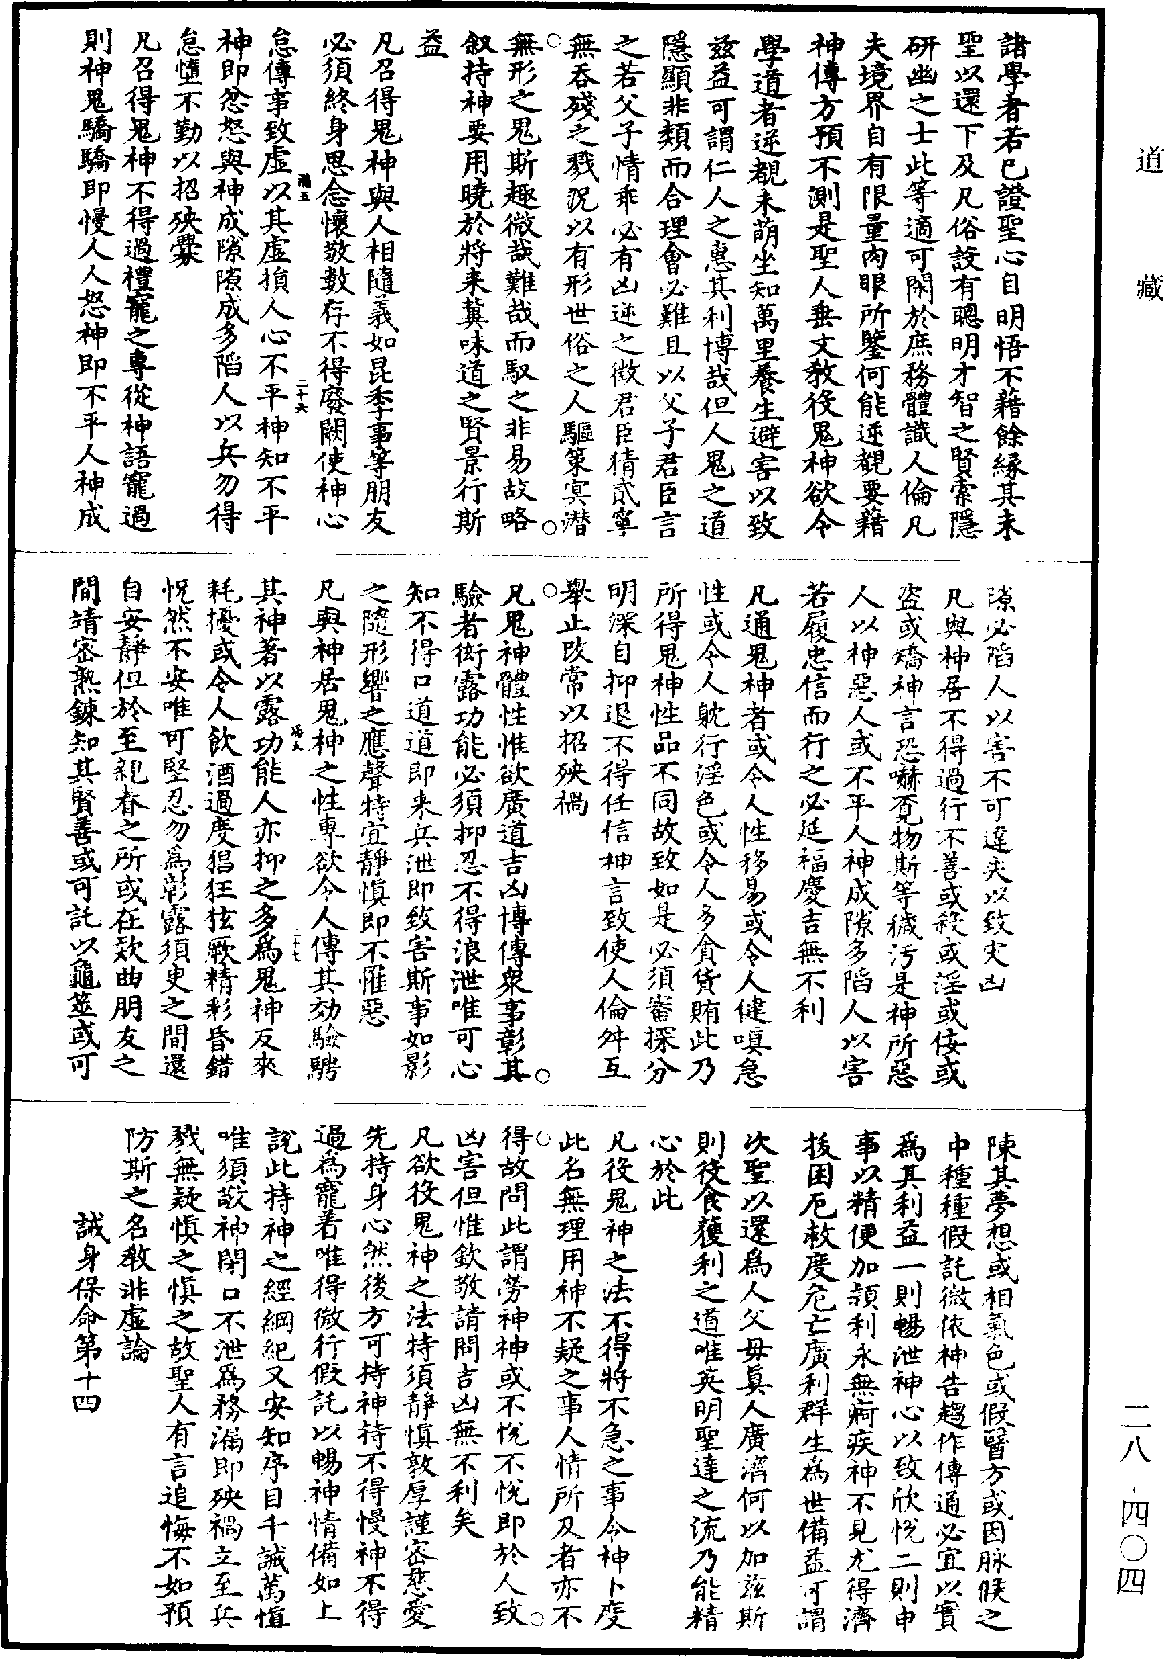 道藏
二八·四〇四
諸學者若已證聖心自明悟不藉餘緣其未
聖以還下及凡俗設有聰明才智之賢索隱
研幽之士此等適可閑於庶務體識人倫凡
夫境界自有限量肉眼所鑒何能逆覩要藉
神傳方預不測是聖人垂文教役鬼神欲令
學道者逆覩未萌坐知萬里養生避害以致
茲益可謂仁人之惠其利博哉但人鬼之道
隱顯非類而合理會必難且以父子君臣言
之若父子情乖必有凶逆之徵君臣猜貳寧
無吞殘之戮況以有形世俗之人驅策冥潛
無形之鬼斯趣微哉難哉而馭之非易故略
叙持神要用曉於將来冀味道之賢景行斯
益
凡召得鬼神與人相隨義如昆季事等朋友
必須終身思念懷敬數存不得廢闕使神心
怠傳事致虛以其虛損人心不平神知不平
神即忿怒與神成隙隙成多陷人以兵勿得
怠墯不勤以招殃釁
凡召得鬼神不得過禮寵之專從神語寵過
則神鬼驕驕即慢人人怒神即不平人神成
滿五
二十六
隙必陷人以害不可違失以致灾凶
凡與神居不得過行不善或殺或淫或佞或
盜或矯神言恐嚇覓物斯等穢汚是神所惡
人以神惡人或不平人神成隙多陷人以害
若履忠信而行之必延福慶吉無不利
凡通鬼神者或令人性移易或令人健嗔急
性或令人躭行淫色或令人多貪貨賄此乃
所得鬼神性品不同故致如是必須審探分
明深自抑退不得任信神言致使人倫舛互
舉止改常以招殃禍
凡鬼神體性惟欲廣道吉凶博傳衆事彰其
驗者衒露功能必須抑忍不得浪泄唯可心
知不得口道道即来兵泄即致害斯事如影
之隨形響之應聲特宜靜慎即不罹惡
凡與神居鬼神之性專欲令人傳其効驗騁
其神著以露功能人亦抑之多為鬼神反來
耗擾或令人飲酒過度猖狂狂厥精彩昏錯
怳然不安唯可堅忍勿為彰露須臾之間還
自安靜但於至親眷之所或在欵曲朋友之
間靖密熟鍊知其賢善或可託以龜筮或可
滿六
二十七
陳其夢想或相氣色或假醫方或因脉候之
中種種假託微依神告趨作傳通必宜以實
為其利益一則暢泄神心以致欣悅二則申
事以精便加頴利永無痾疾神不見尤得濟
拔困厄救度危亡廣利群生為世備益可謂
次聖以還為人父毋真人廣濟何以加兹斯
則役食獲利之道唯英明聖達之流乃能精
心於此
凡役鬼神之法不得將不急之事令神卜度
此名無理用神不疑之事人情所及者亦不
得故問此謂勞神神或不悅不悅即於人致
凶害但惟欽敬請問吉凶無不利矣
凡欲役鬼神之法特須靜慎敦厚謹密慈愛
先持身心然後方可持神持不得慢神不得
過為寵着唯得微行假託以暢神情備如上
說此持神之經綱紀又安知序目千誡萬慎
唯須敬神閉口不泄為務漏即殃禍立至兵
戮無疑慎之慎之故聖人有言追悔不如預
防斯之名教非虛論
誡身保命第十四